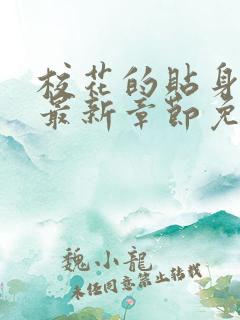 校花的贴身
最新章节免
魏小龍
未经同意禁止转载